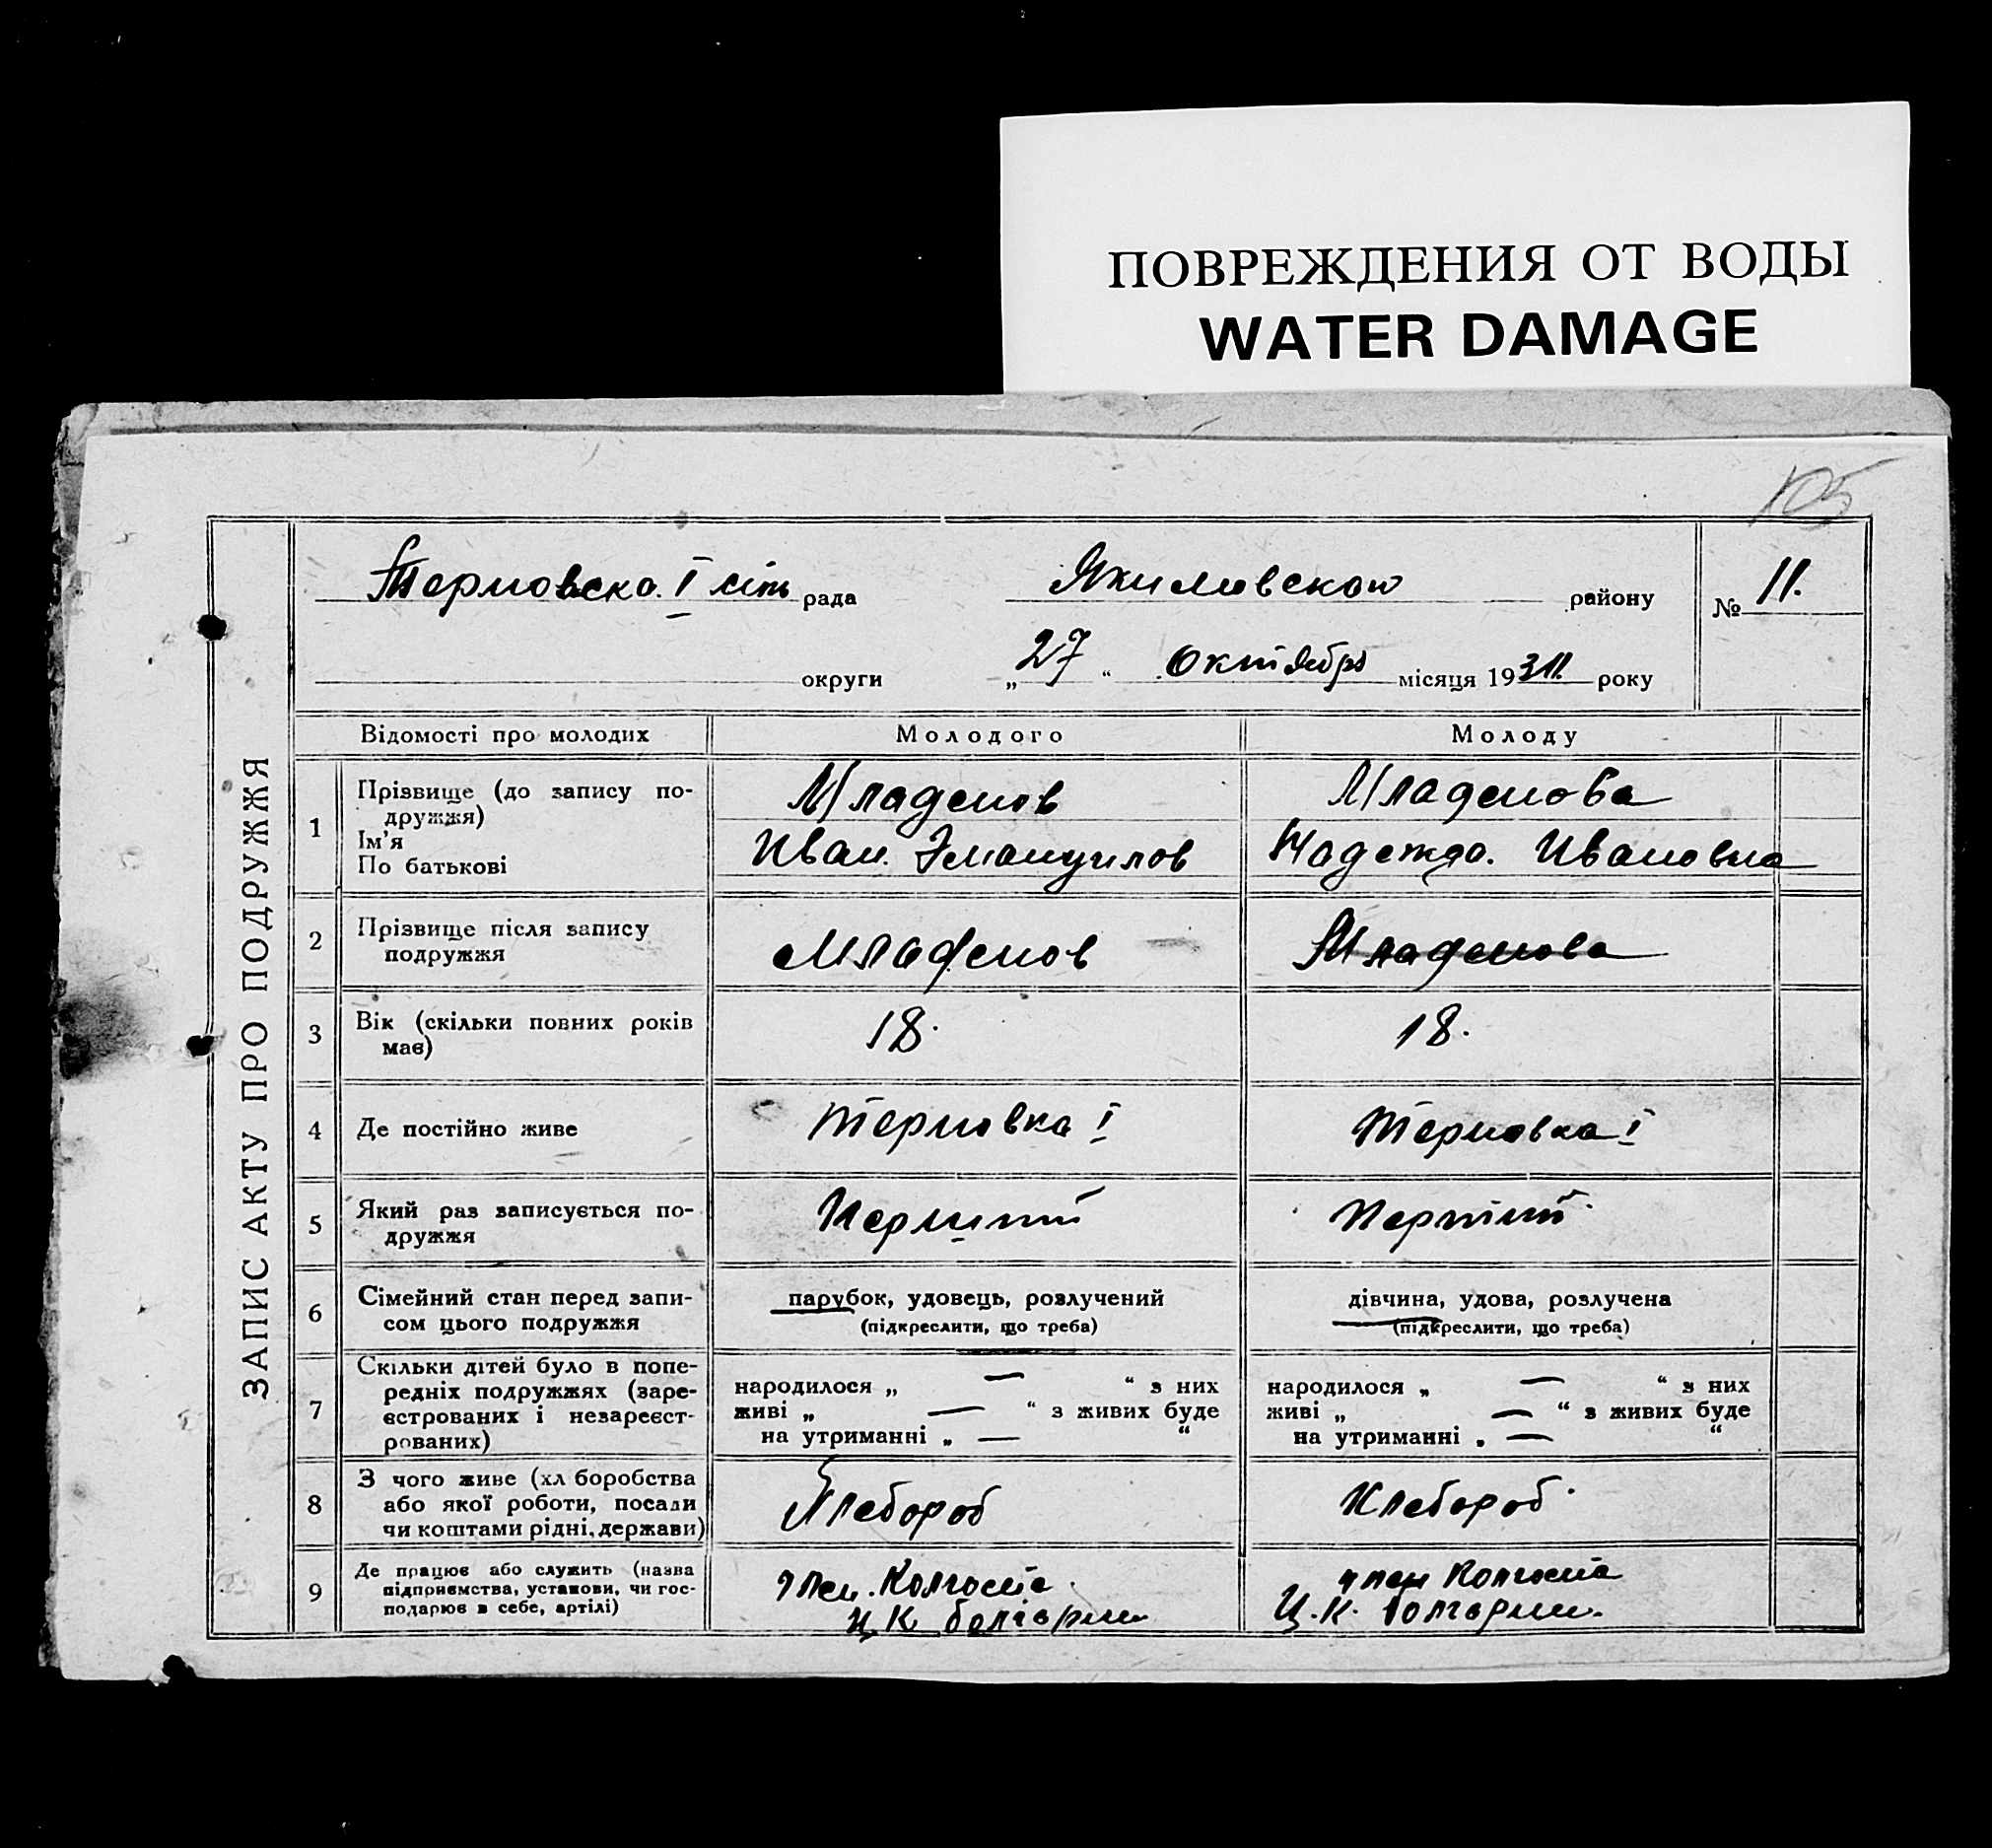 ПОВРЕЖДЕНИЯ ОТ ВОДЫ
WATER DAMAGE
105
Терновска I сіль рада Якимовского району № 11.
округи „27“ Октября місяця 1931. року
ЗАПИС АКТУ ПРО ПОДРУЖЖЯ
Відомості про молодих Молодого Молоду
1 Прізвище (до запису по- Младенов Младенова
дружжя)
Ім'я Иван. Эмануилов Надежда. Ивановна
По батькові
2 Прізвище після запису
подружжя Младенов Младенова
3 Вік (скільки повних років 18. 18.
має)
4 Де постійно живе Терновка I Терновка I
5 Який раз записується по- Перший Перший
дружжя
6 Сімейний стан перед запи- парубок, удовець, розлучений дівчина, удова, розлучена
сом цього подружжя (підкреслити, що треба) (підкреслити, що треба)
7 Скільки дітей було в попе-
редніх подружжях (заре- народилося „ — “ з них народилося „ — “ з них
єстрованих і незареєст- живі „ — “ з живих буде живі „ — “ з живих буде
рованих) на утриманні „ — “ на утриманні „ — “
8 З чого живе (хліборобства
або якої роботи, посади Хлебороб Хлебороб.
чи коштами рідні, держави)
9 Де працює або служить (назва член. Колгоспа член Колгоспа
підприємства, установи, чи гос- Ц К болгарии Ц. К. Болгарии.
подарює в себе, артілі)